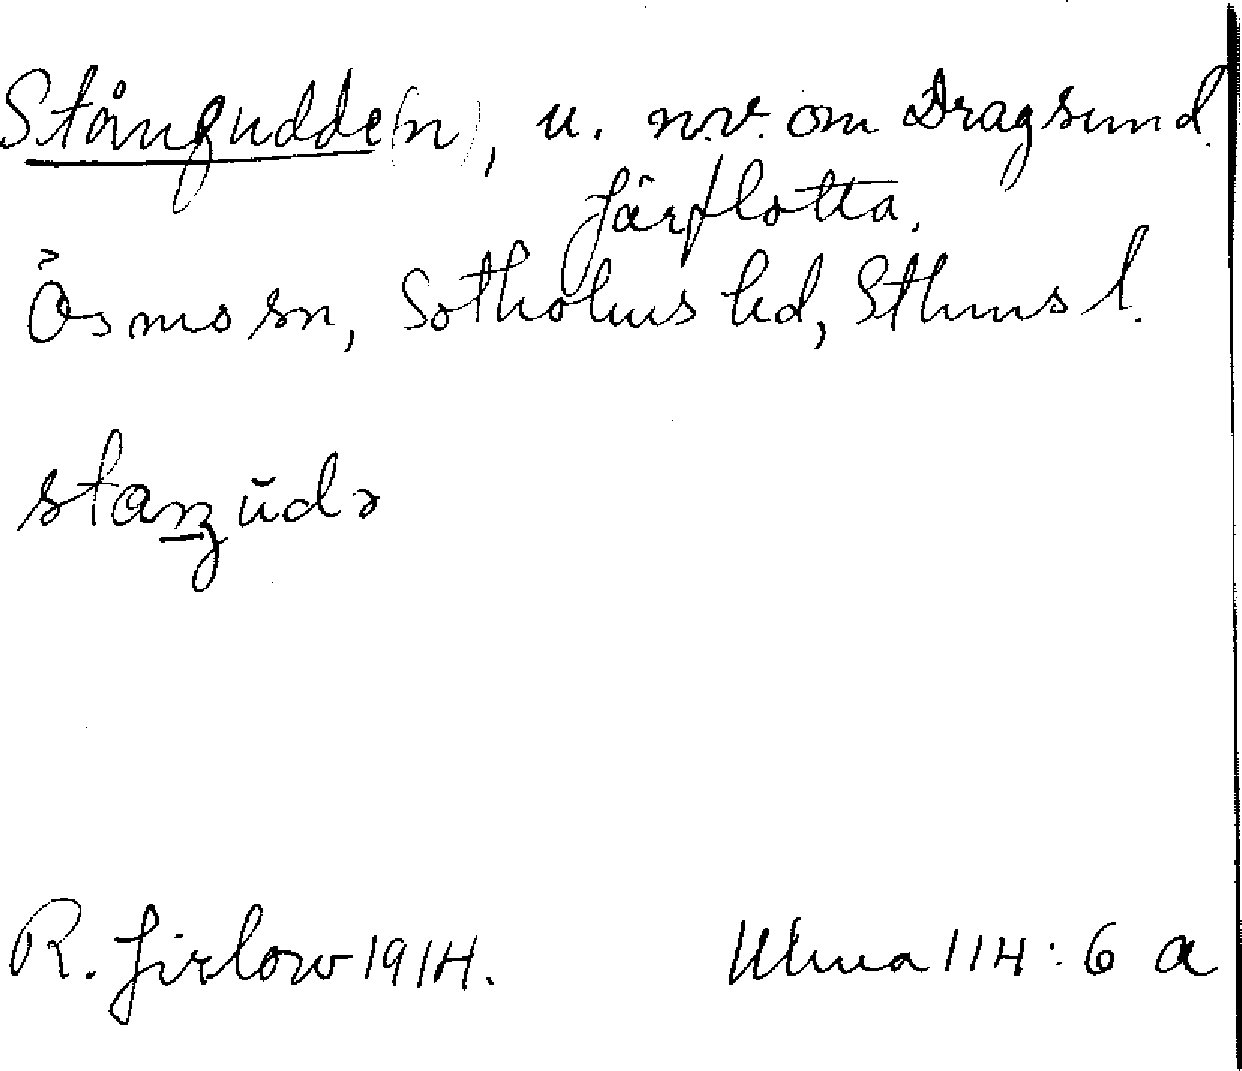 Stångudde(n), u. n.v. om Dragsund.
Järflotta.
Ösmo sn, Sotholms hd, Sthms l.
R. Jirlow 1914.
Ulma 114:6 a